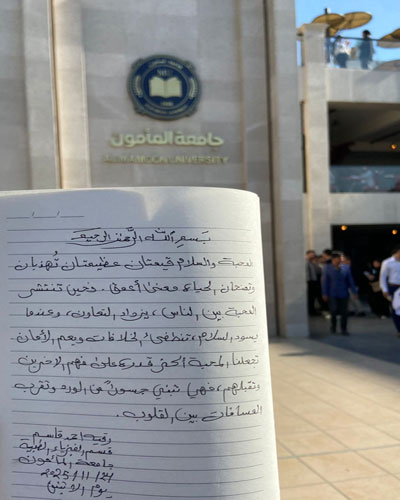 جامعة المأمون
AL-MAMOON UNIVERSITY
بسم الله الرحمن الرحيم
المحبة والسلام قيمتان عظيمتان تُهذبان
وتمنحان الحياة معنى أعمق. فحين تنتشر
المحبة بين الناس، يزداد التعاون، وعندما
يسود السلام، تنطفئ الخلافات ويعم الأمان
تجعلنا المحبة أكثر قدرة على فهم الآخرين
وتقبلهم، فهي تبني جسورًا من الود وتقرب
المسافات بين القلوب.
رقية احمد قاسم
قسم الفيزياء الطبية
جامعة المأمون
2025/11/24
يوم الاثنين